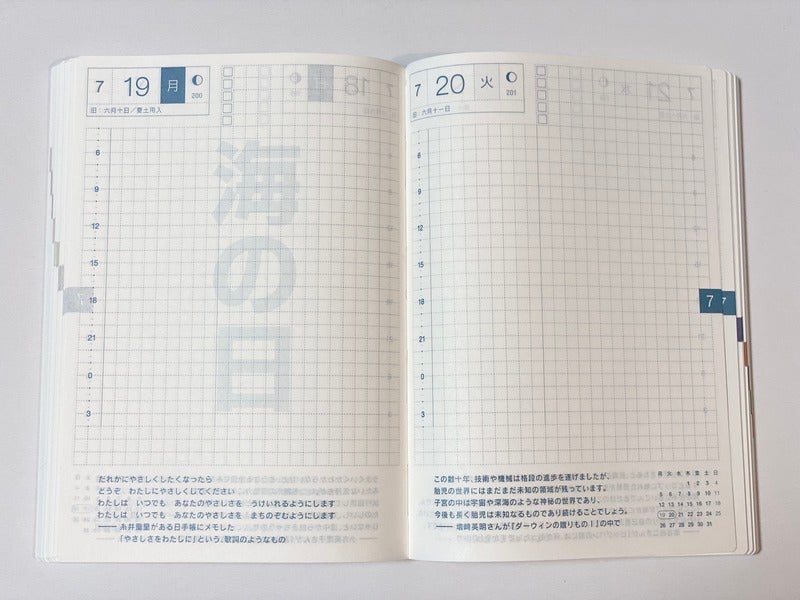 7 19 月 200
旧:六月十日/夏土用入
6
9
12
15
18
21
0
3
海の日
だれかにやさしくしたくなったら
どうぞ わたしにやさしくしてください
わたしは いつでも あなたのやさしさを うけいれるようにします
わたしは いつでも あなたのやさしさを まちのぞむようにします
—— 糸井重里がある日手帳にメモした
「やさしさをわたしに」という、歌詞のようなもの
7 20 火 201
旧:六月十一日
6
9
12
15
18
21
0
3
7 7
この数十年、技術や機械は格段の進歩を遂げましたが、
胎児の世界にはまだまだ未知の領域が残っています。
子宮の中は宇宙や深海のような神秘の世界であり、
今後も長く胎児は未知なるものであり続けることでしょう。
—— 増﨑英明さんが『ダーウィンの贈りものⅠ』の中で
月 火 水 木 金 土 日
1 2 3 4
5 6 7 8 9 10 11
12 13 14 15 16 17 18
19 20 21 22 23 24 25
26 27 28 29 30 31